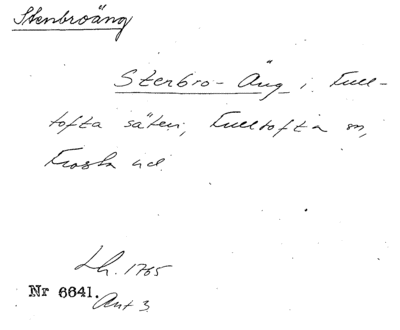 Stenbroäng
Stenbro-Äng i Full-
tofta säteri, Fulltofta sn,
Frosta hd.
Lh. 1765
Nr 6641.
Akt 3.